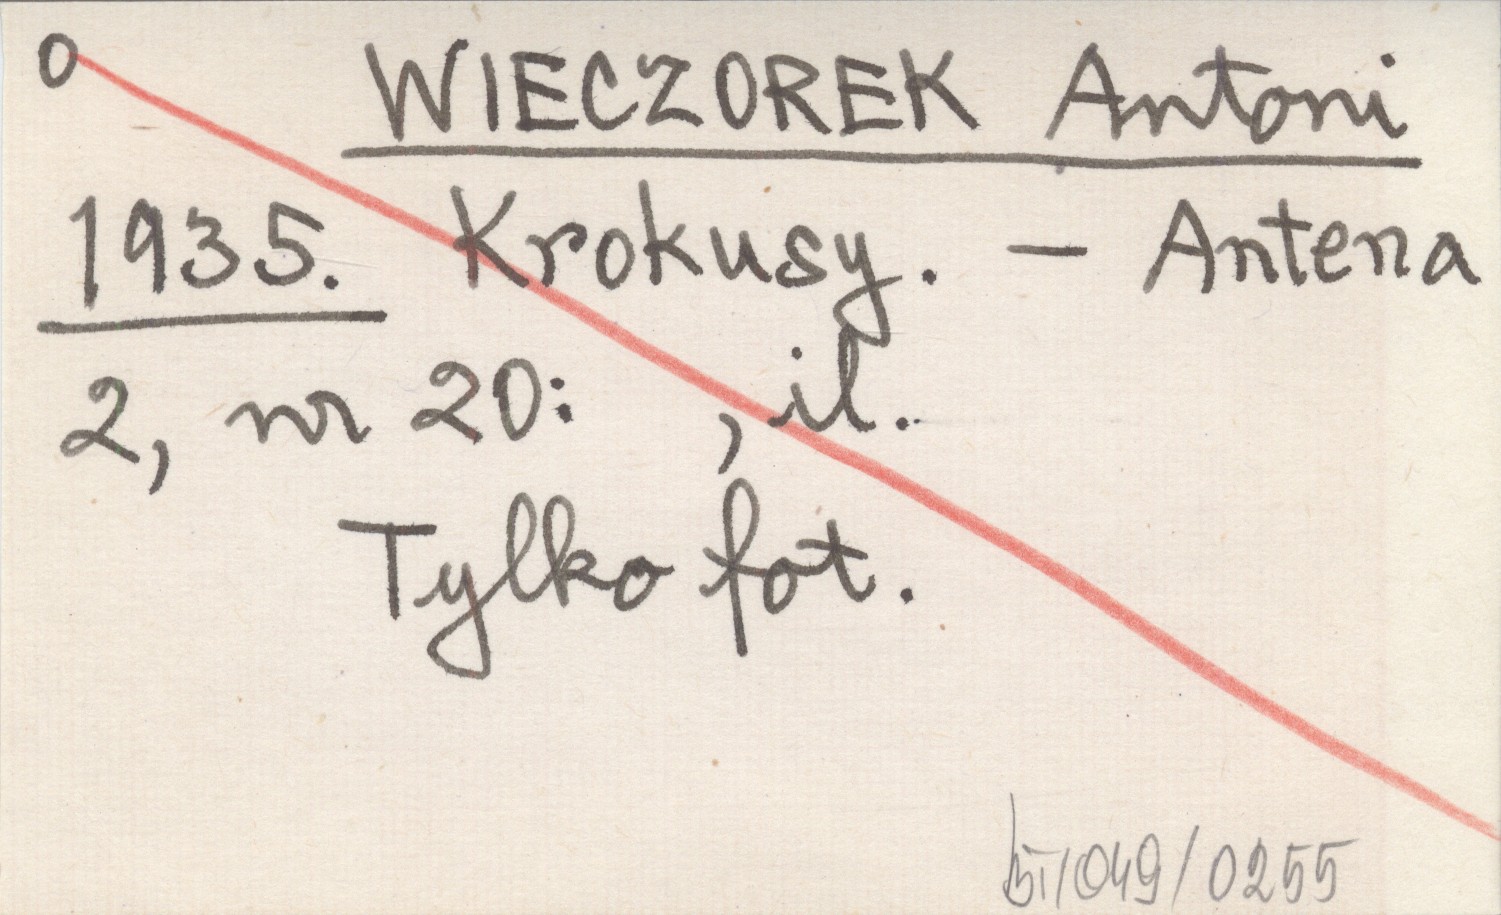 O WIECZOREK Antoni
1935. Krokusy. — Antena
2, nr 20: , il.
Tylko fot.
/049/0255